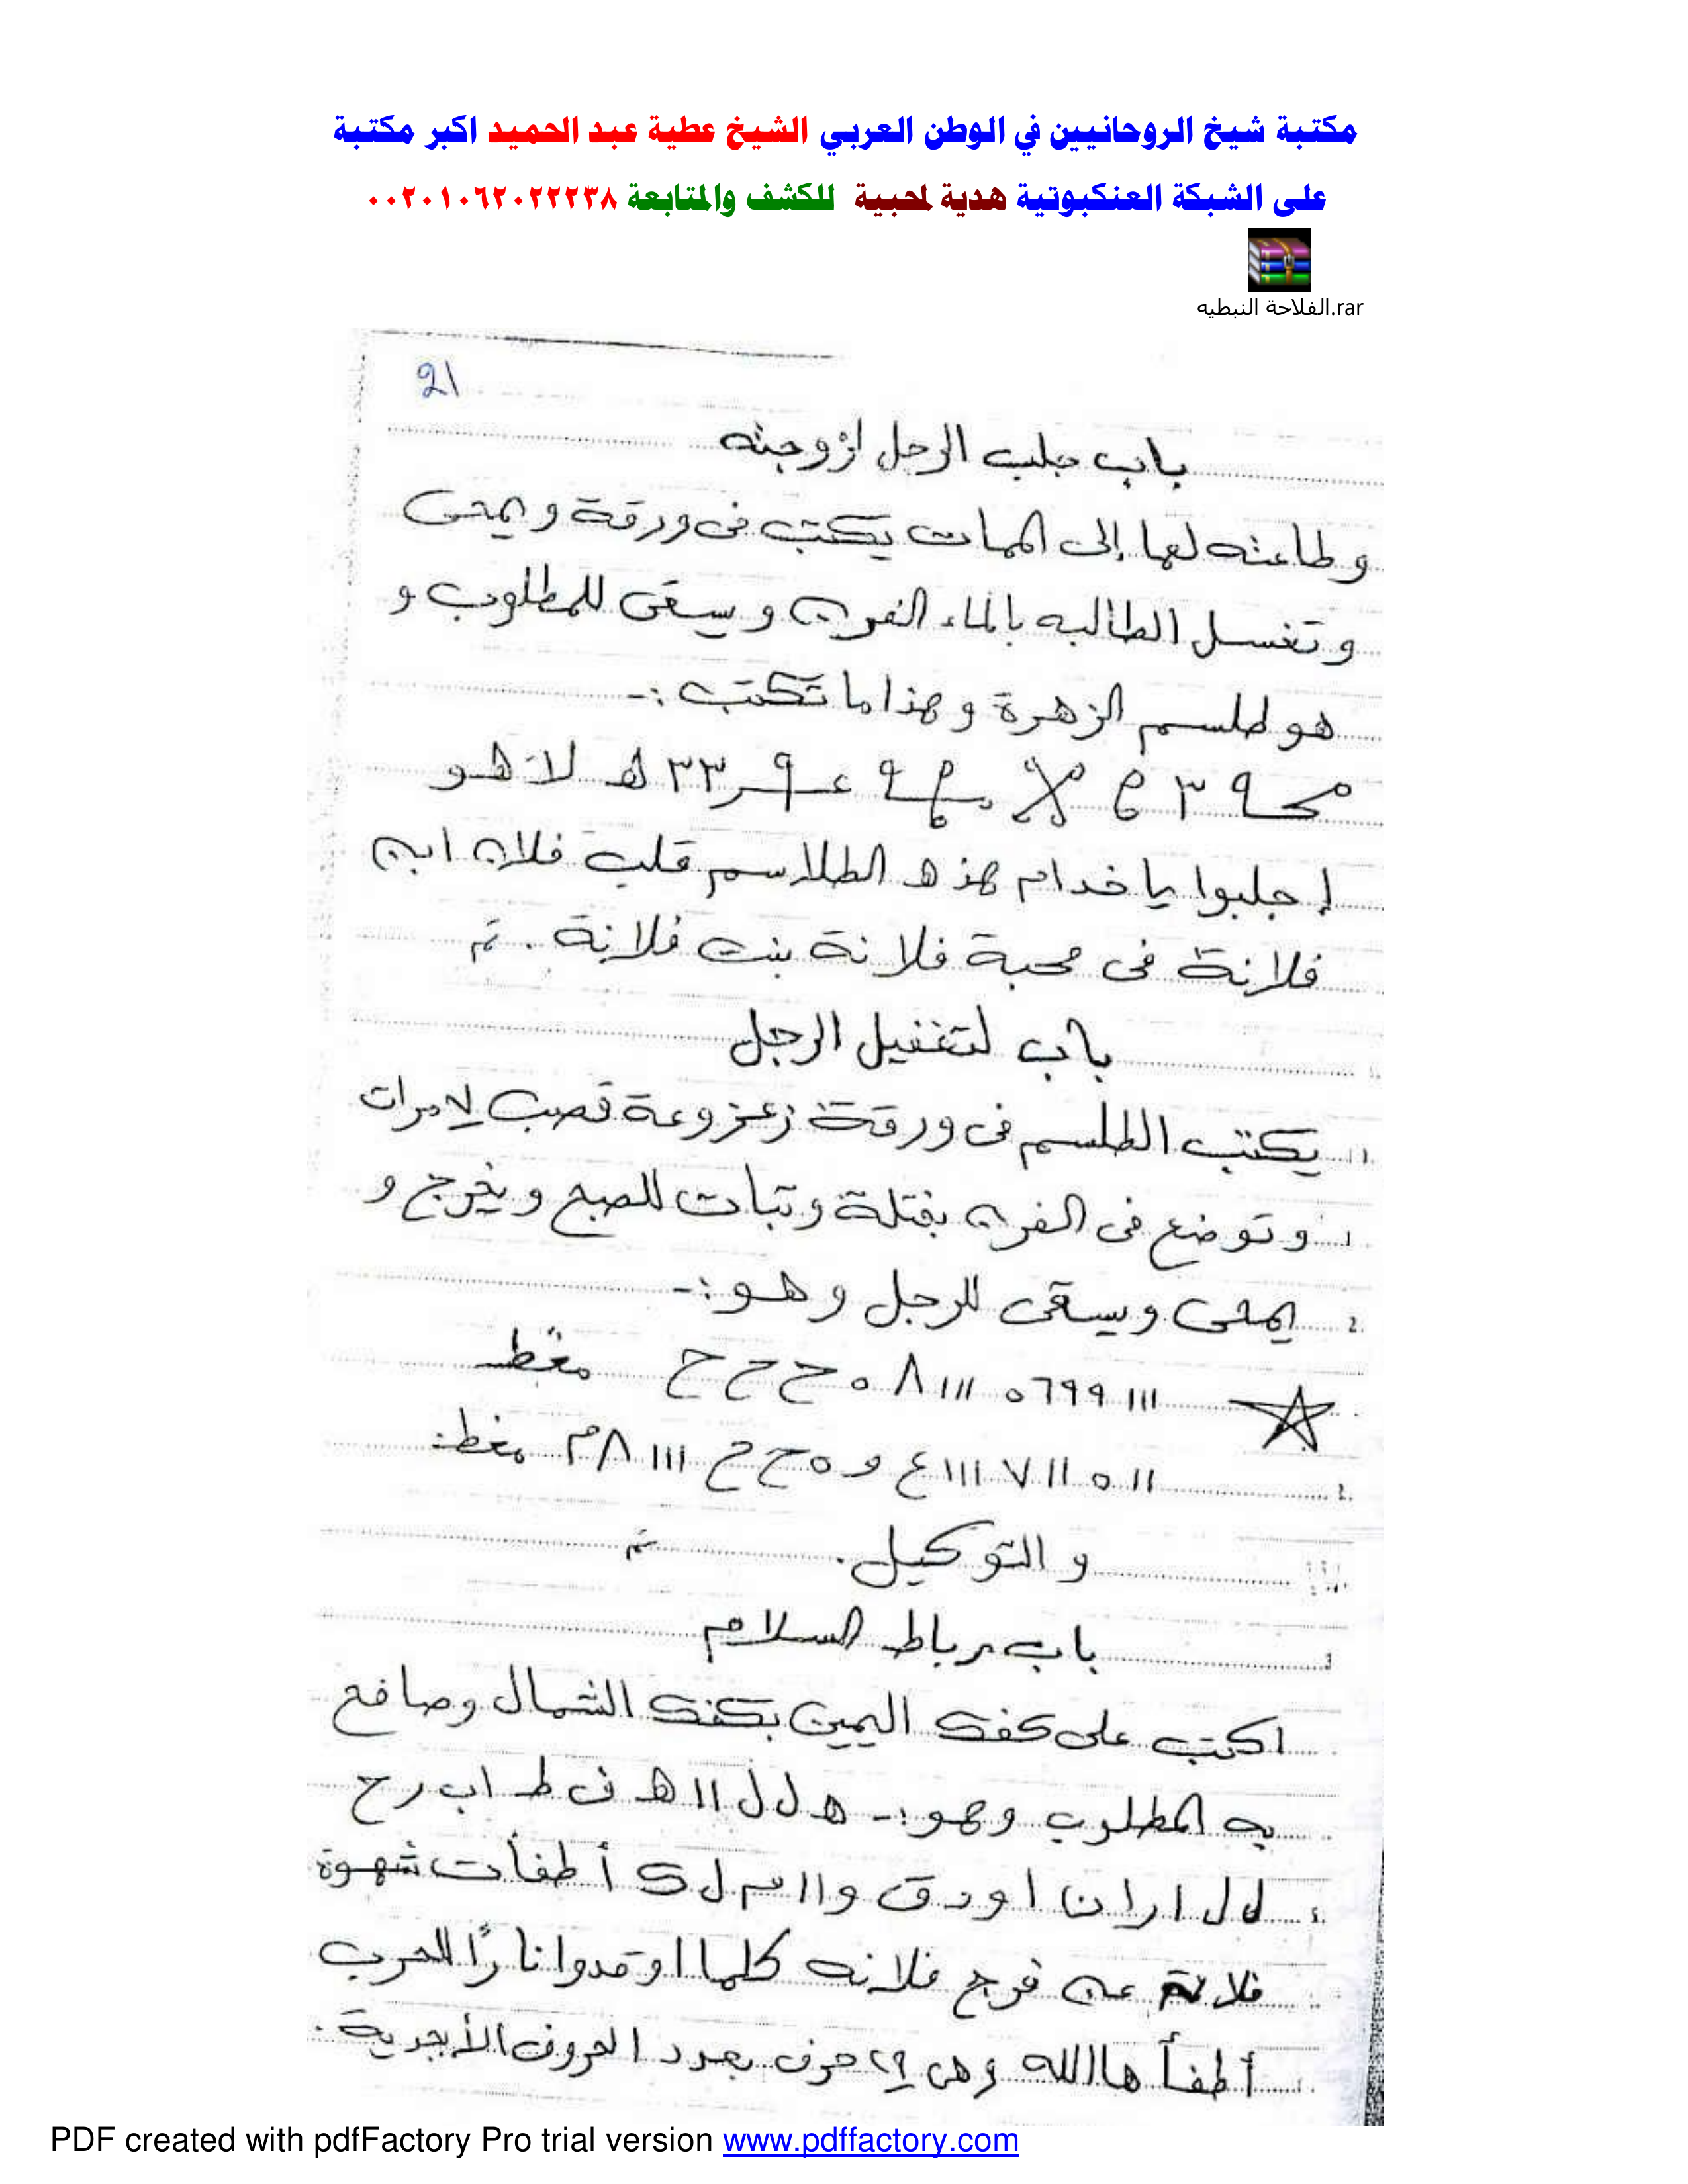 مكتبة شيخ الروحانيين في الوطن العربي الشيخ عطية عبد الحميد اكبر مكتبة
على الشبكة العنكبوتية هدية لمحبية للكشف والمتابعة ٠٠٢٠١٠٦٢٠٢٢٢٣٨
الفلاحة النبطيه.rar
21
باب جلب الرجل لزوجته
وطاعته لها إلى الممات يكتب فى ورقة ويمحى
وتغسل الطالبه بالماء الفرن ويسقى للمطلوب و
هو طلسم الزهرة وهذا ما تكتب :-
٣٣ ھ لا هو
إجلبوا يا خدام هذه الطلاسم قلب فلان ابن
فلانة فى محبة فلانة بنت فلانة . تم
باب لتغفيل الرجل
يكتب الطلسم فى ورقة زعزوعة قصب لامرات
وتوضع فى الفرن بفتلة وتبات للصبح ويخرج و
يمحى ويسقى للرجل وهو :-
١١١ ٩٩٦ ٥ ١١١ ٨ ٥ ح ح ح مغط
١١ ٥ ١١ ٧ ١١١ ع و ٥ ح ح ١١١ ٨ م مغط
والتوكيل . تم
باب رباط السلام
اكتب على كفك اليمين بكفك الشمال وصافح
به المطلوب وهو :- ه ل ل ا ا ه ف ط ا ب ر ح
ل ل ا ر ا ن ا و د ق و ا ا م ل ك أطفأت شهوة
فلانة عن فرج فلانه كلما اوقدوا نارًا للحرب
أطفأها الله وهى حرف بعدد الحروف الأبجدية .
PDF created with pdfFactory Pro trial version www.pdffactory.com